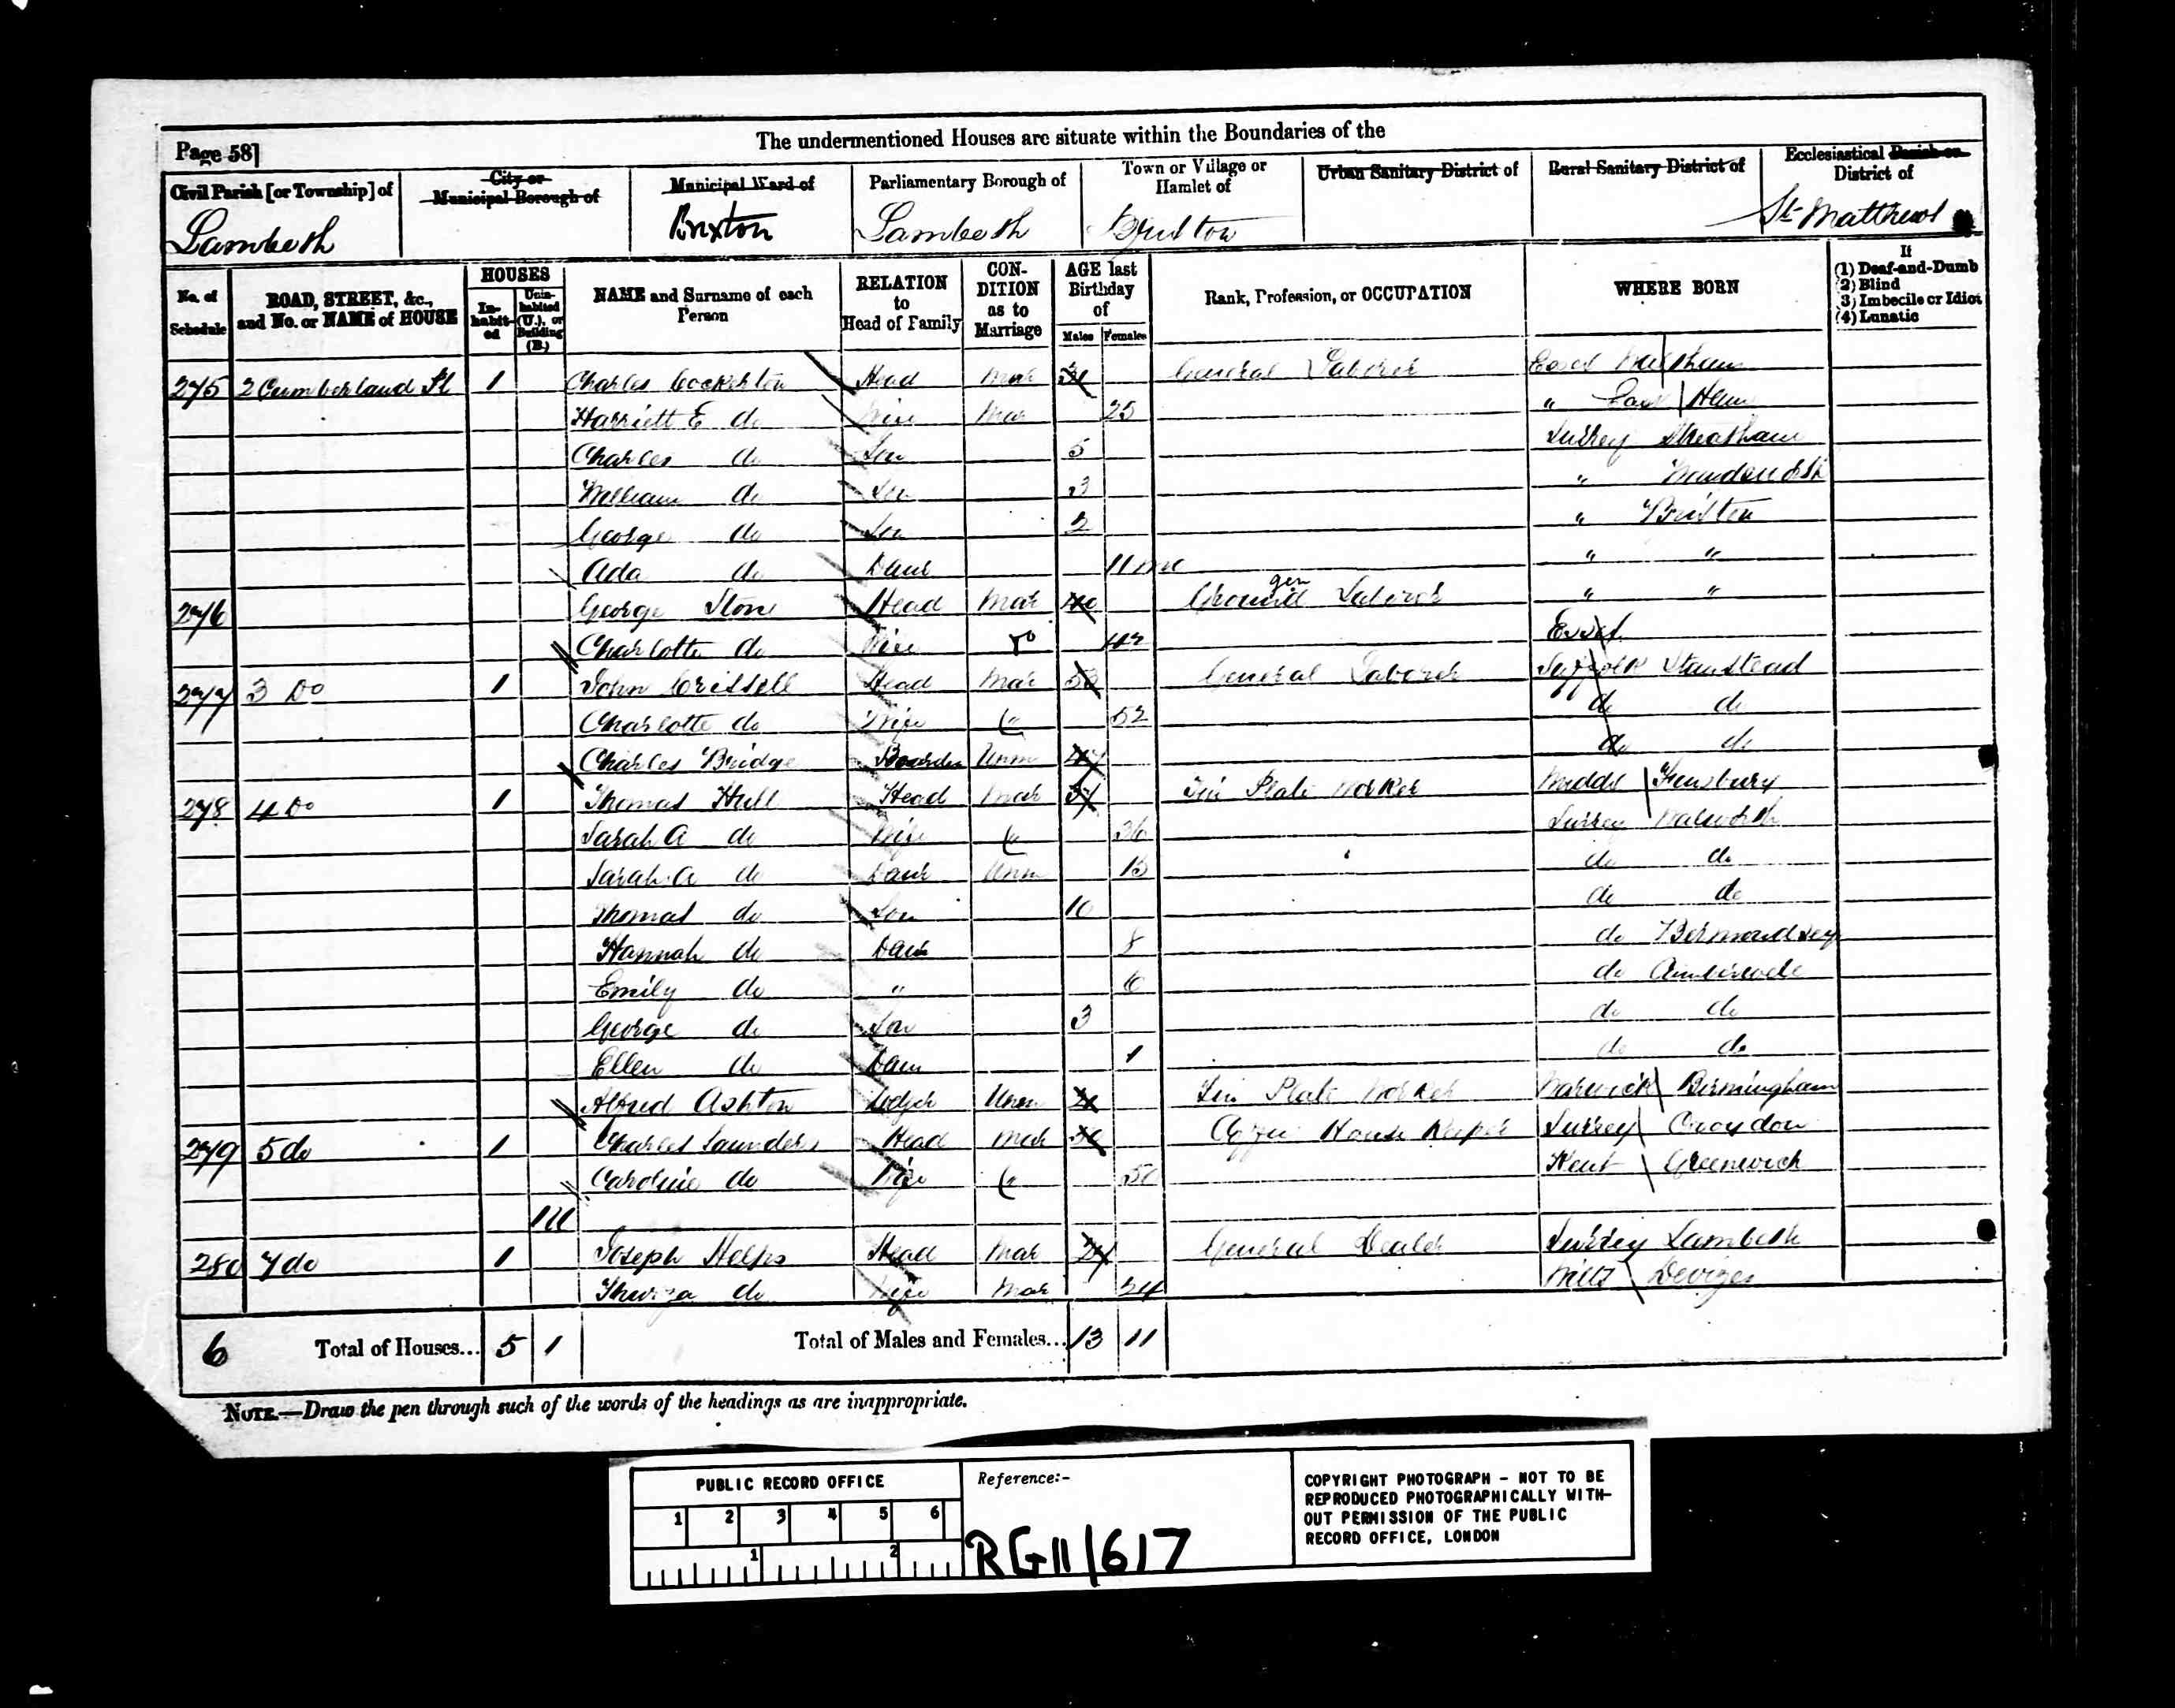 The undermentioned Houses are situate within the Boundaries of the
Page 58]
Civil Parish [or Township] of
City or Municipal Borough of
Municipal Ward of
Parliamentary Borough of
Town or Village or Hamlet of
Urban Sanitary District of
Rural Sanitary District of
Ecclesiastical Parish or District of
Lambeth
Brixton
Lambeth
Brixton
St Matthews
No. of Schedule
ROAD, STREET, &c., and No. or NAME of HOUSE
HOUSES
In-habit-ed
Unin-habited (U.), or Building (B.)
NAME and Surname of each Person
RELATION to Head of Family
CON-DITION as to Marriage
AGE last Birthday of
Males
Females
Rank, Profession, or OCCUPATION
WHERE BORN
If
(1) Deaf-and-Dumb
(2) Blind
(3) Imbecile or Idiot
(4) Lunatic
275 2 Cumberland Pl 1 Charles Cockerton Head Mar General Laborer
Harriett E do Wife Mar 25 " East Ham
Charles do Son 5 Surrey Streatham
William do Son 3 "
George do Son 2 " Brixton
Ada do Daur 11 mo " "
276 George Stone Head Mar 40 gen Laborer " "
Charlotte do Wife Do 42 Essex
277 3 Do 1 John Crissell Head Mar General Laborer Suffolk Stanstead
Charlotte do Wife " 52 do do
Charles Bridge Boarder Unm do do
278 4 Do 1 Thomas Hull Head Mar 37 Tin Plate Worker Middx Finsbury
Sarah A do Wife " 36 Surrey Walworth
Sarah A do Daur Unm 13 do do
Thomas do Son 10 do do
Hannah do Daur 8 do Bermondsey
Emily do " 6 do Camberwell
George do Son 3 do do
Ellen do Daur 1 do do
Alfred Ashton Lodger Unm Tin Plate Worker Warwick Birmingham
279 5 do 1 Charles Saunders Head Mar Coffee House Keeper Surrey Croydon
Caroline do Wife " 50 Kent Greenwich
1U
280 7 do 1 Joseph Helps Head Mar 24 General Dealer Surrey Lambeth
Thirza do Wife Mar 24 Wilts Devizes
6 Total of Houses... 5 1 Total of Males and Females... 13 11
NOTE.—Draw the pen through such of the words of the headings as are inappropriate.
PUBLIC RECORD OFFICE
1 2 3 4 5 6
1 2
Reference:-
RG11/617
COPYRIGHT PHOTOGRAPH - NOT TO BE
REPRODUCED PHOTOGRAPHICALLY WITH-
OUT PERMISSION OF THE PUBLIC
RECORD OFFICE, LONDON